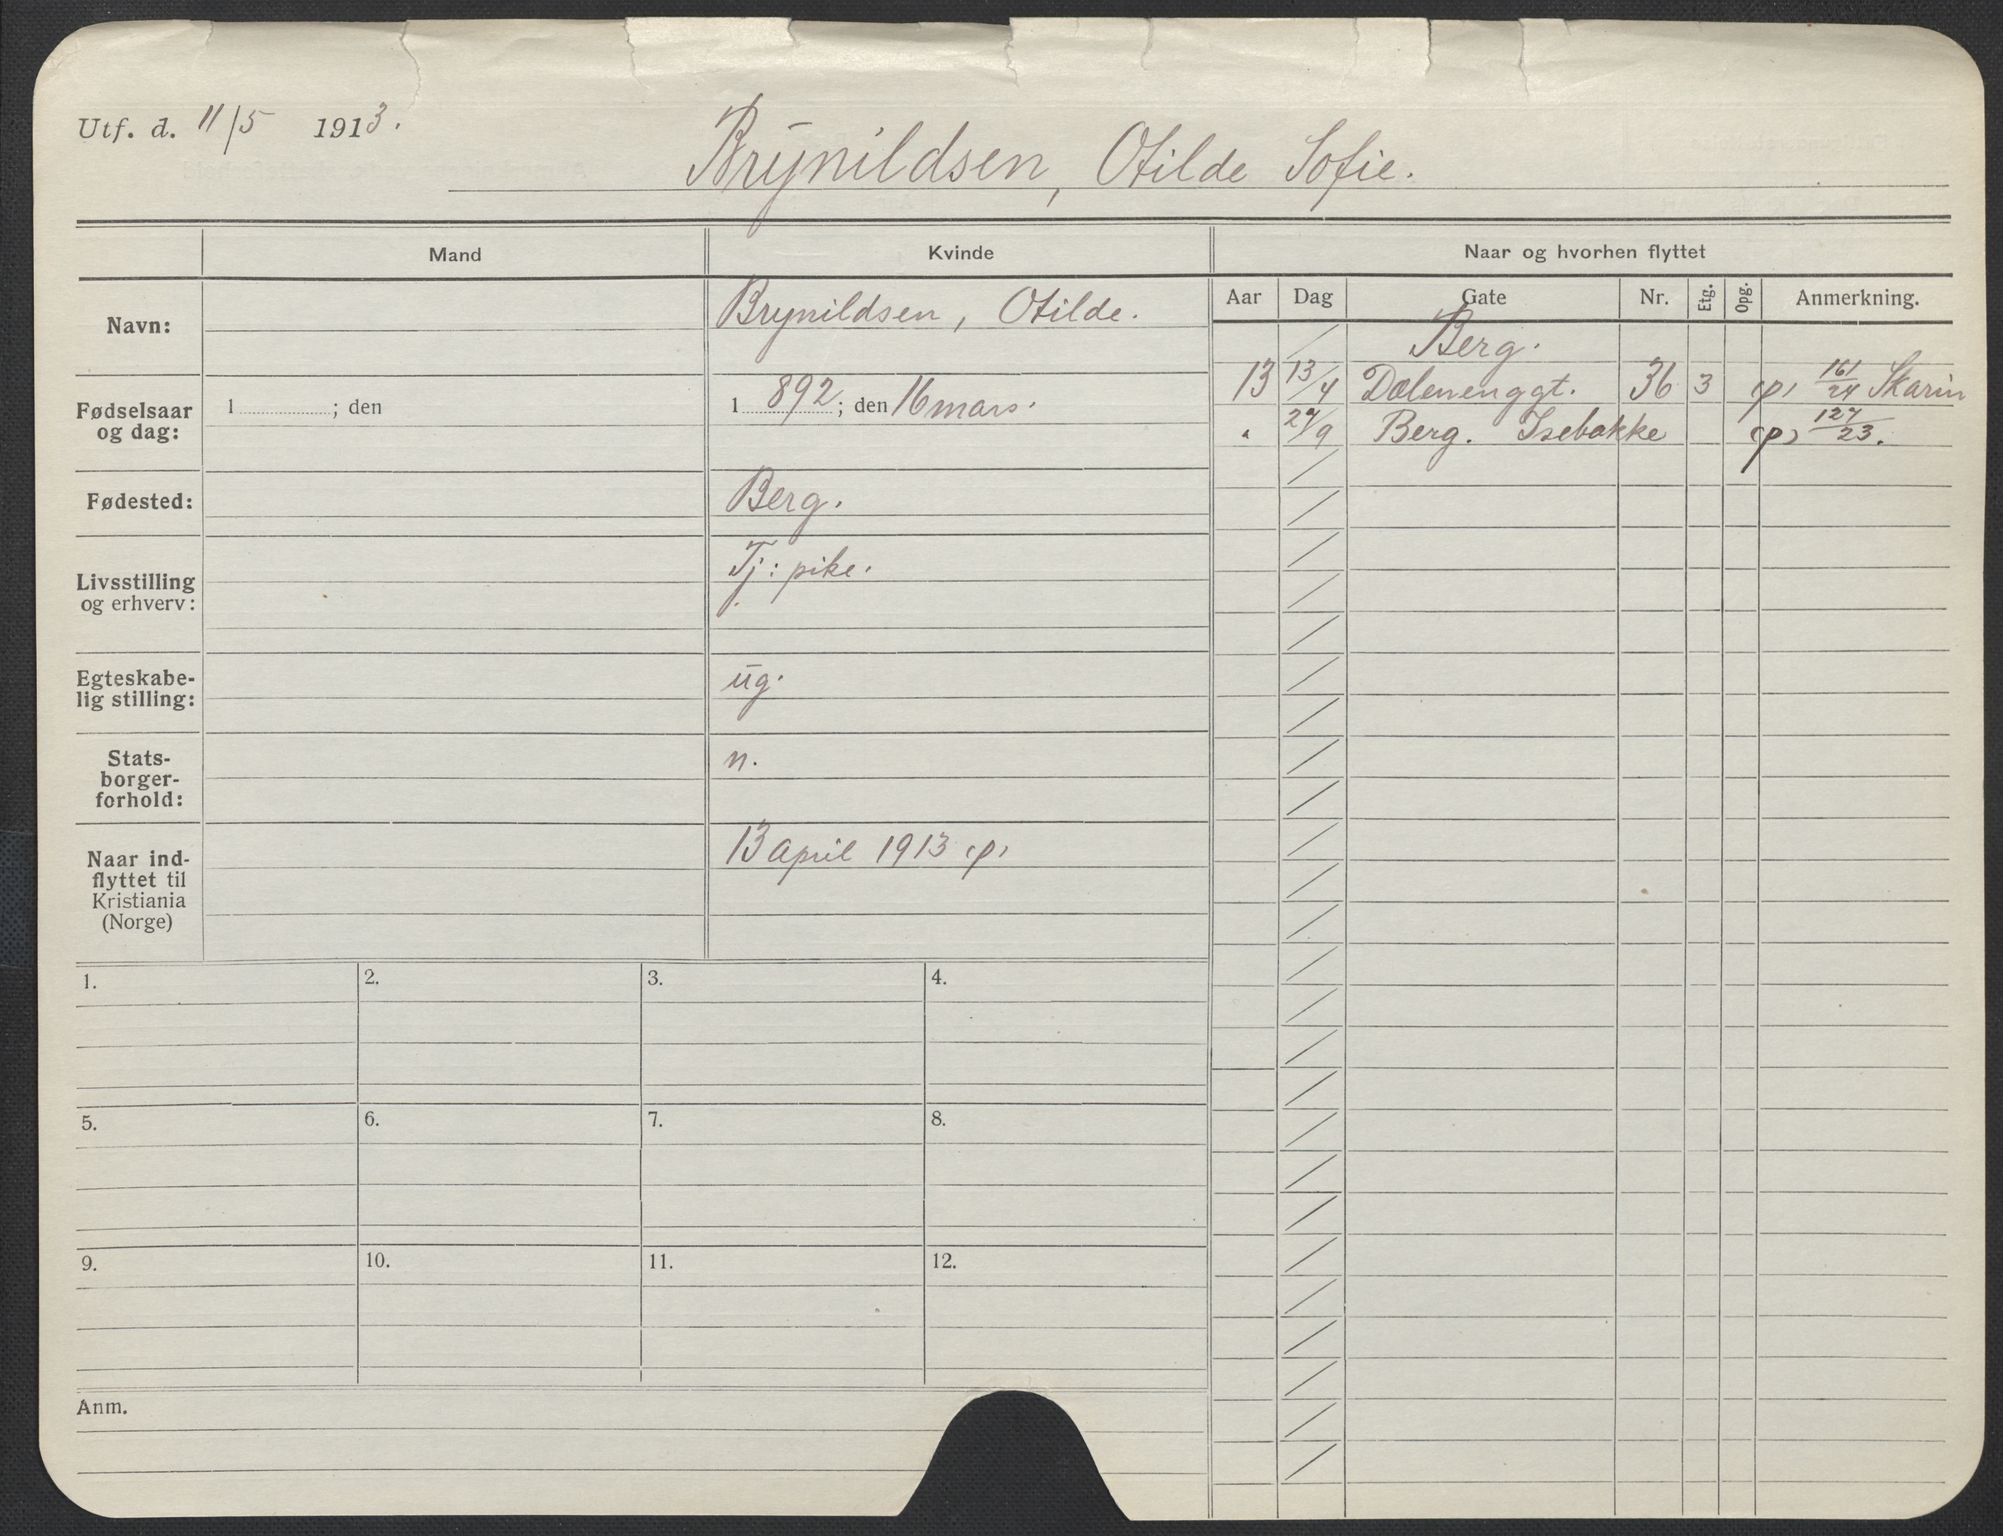 Utf. d. 11/5 1913.
Brynildsen, Otilde Sofie.
Mand Kvinde Naar og hvorhen flyttet
Aar Dag Gate Nr. Etg. Opg. Anmerkning.
Navn: Brynildsen, Otilde.
Fødselsaar og dag: 1 ; den 1892; den 16 mars.
Fødested: Berg.
Livsstilling og erhverv: Tj: pike.
Egteskabe-
lig stilling: ug.
Stats-
borger-
forhold: n.
Naar ind-
flyttet til
Kristiania
(Norge) 13 april 1913 (p)
Berg.
13 13/4 Dælenenggt. 36 3 (p) 161/24 Skarin
" 27/9 Berg. Isebakke (p) 127/23.
1. 2. 3. 4.
5. 6. 7. 8.
9. 10. 11. 12.
Anm.